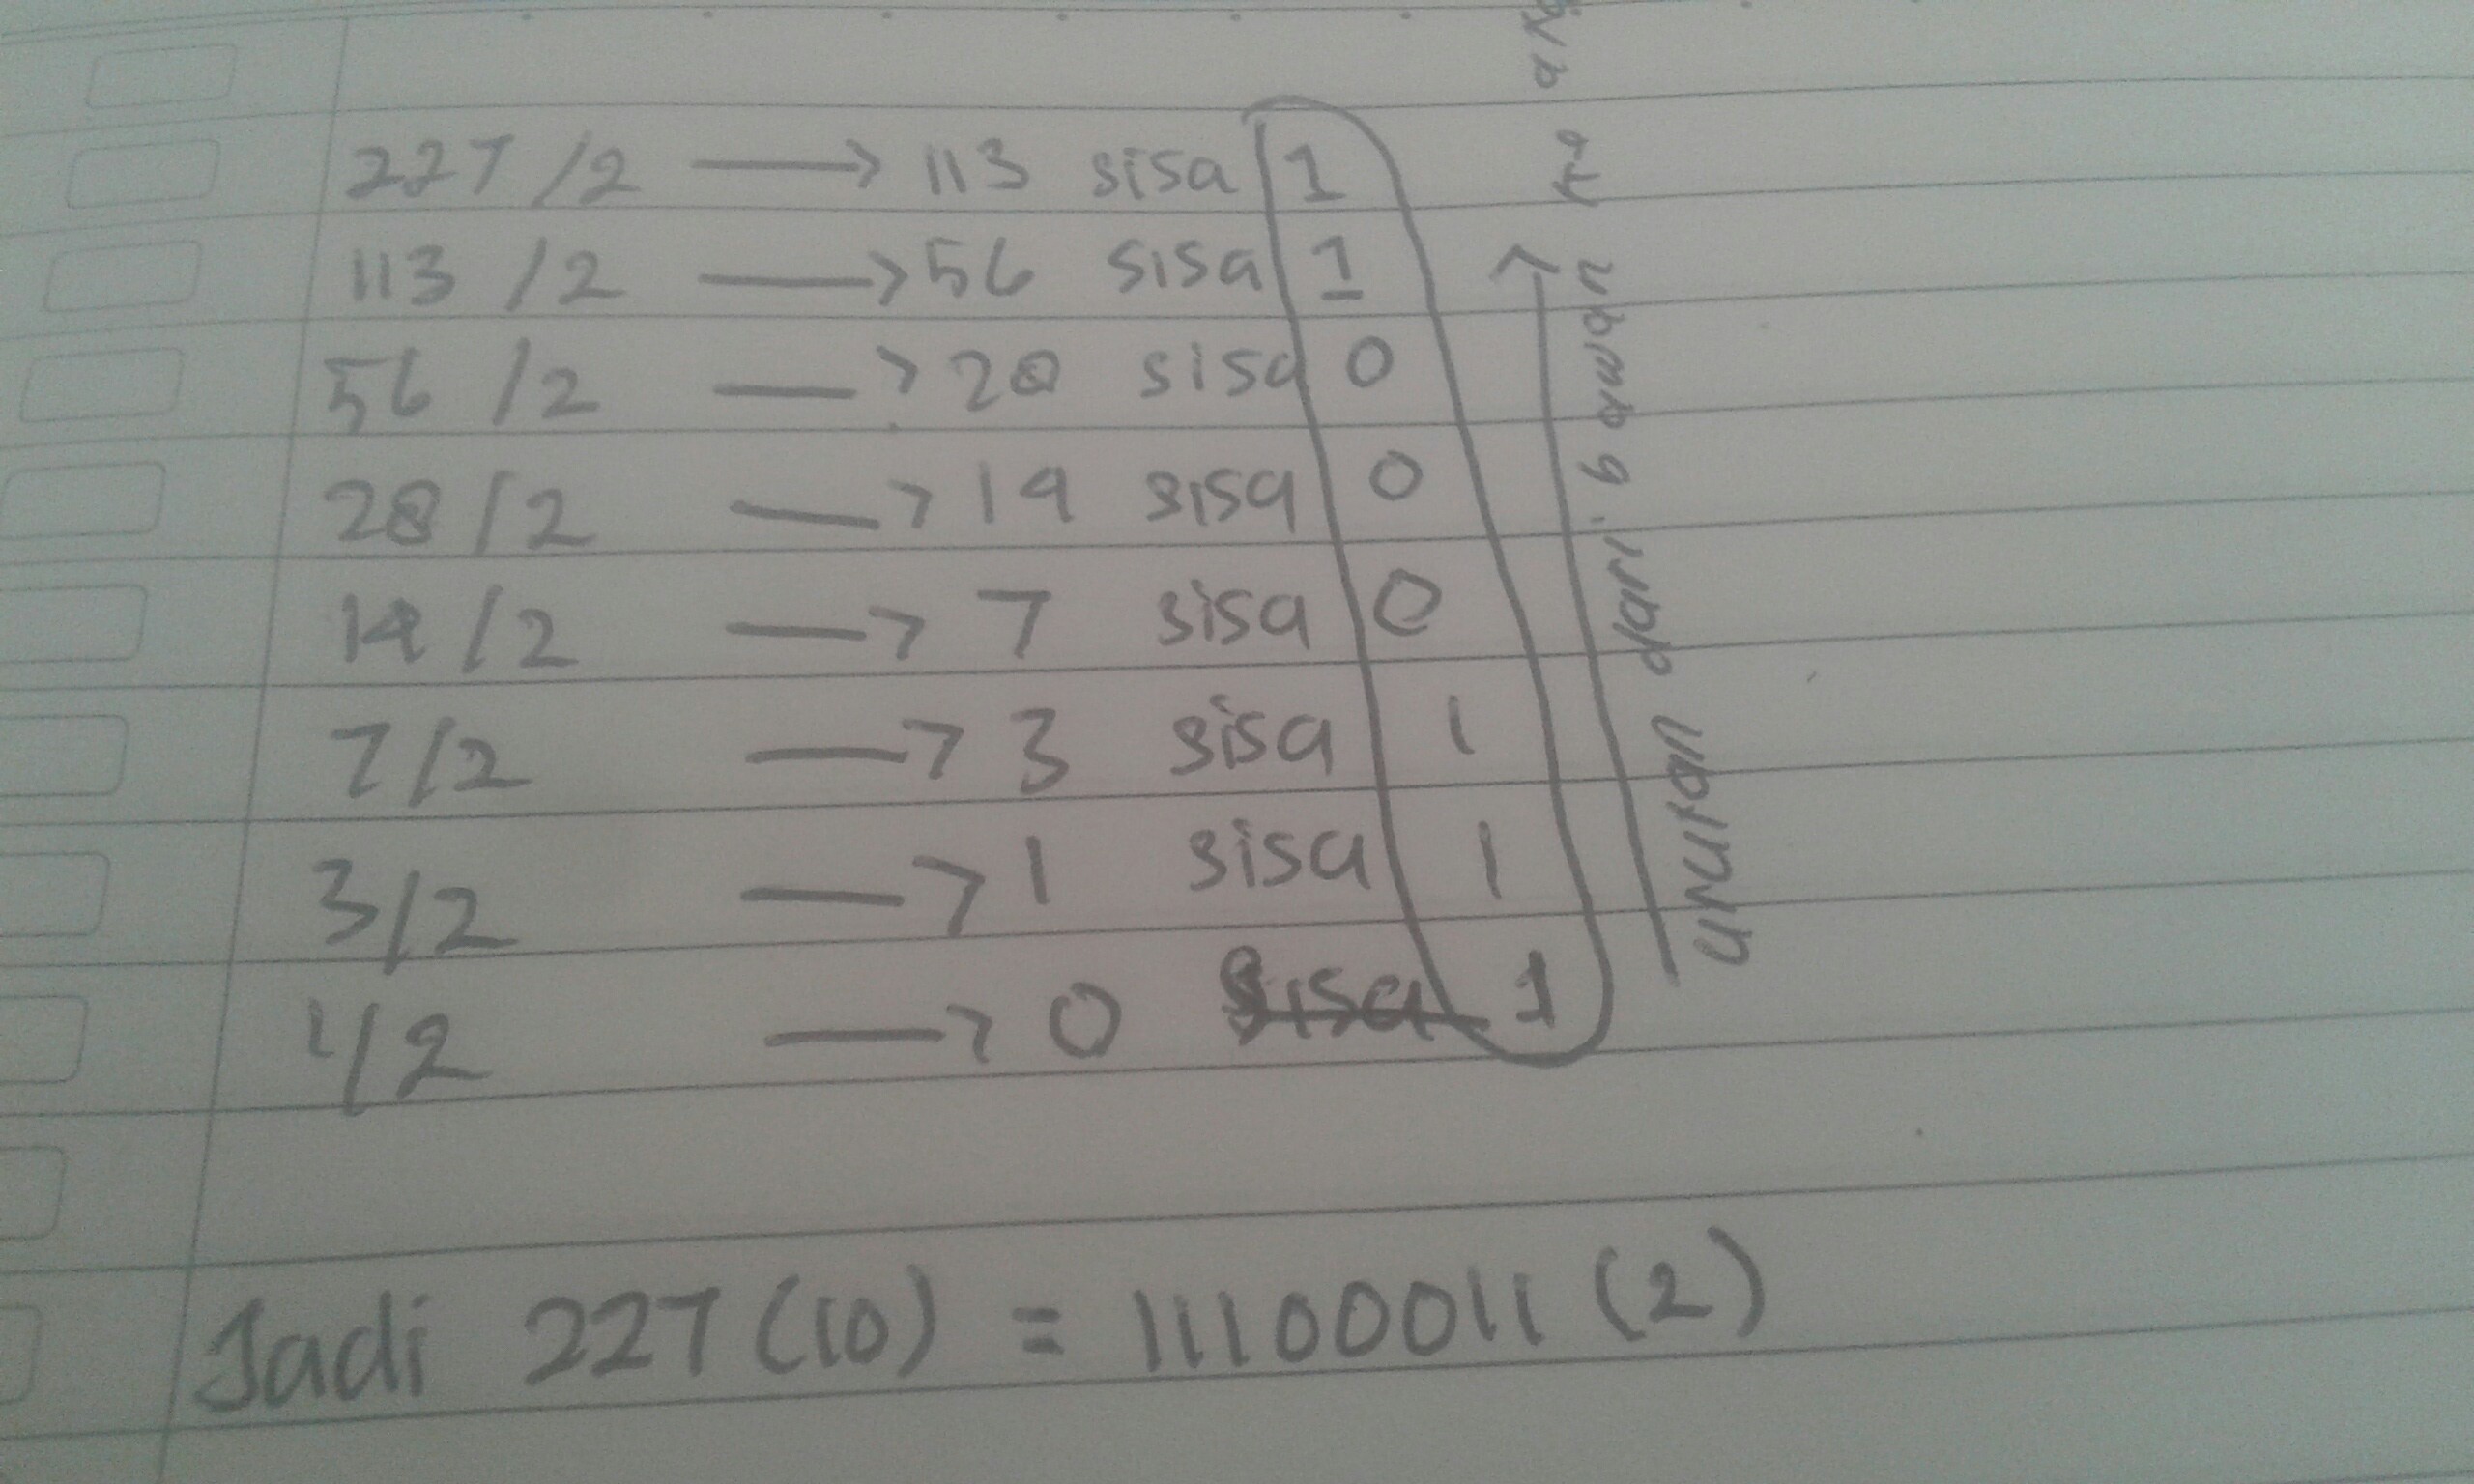 227 /2 → 113 sisa 1
113 /2 → 56 sisa 1
56 /2 → 28 sisa 0
28 /2 → 14 sisa 0
14 /2 → 7 sisa 0
7/2 → 3 sisa 1
3/2 → 1 sisa 1
1/2 → 0 sisa 1
urutan dari bawah ke
Jadi 227 (10) = 11100011 (2)